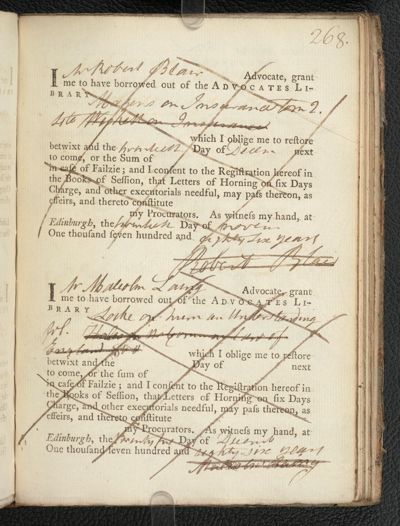 268.
I Mr Robert Blair Advocate, grant
me to have borrowed out of the ADVOCATES LI-
BRARY Magens on Insurance tom 2.
4to on Insurance
which I oblige me to reſtore
betwixt and the Day of Decem next
to come, or the Sum of
in caſe of Failzie; and I conſent to the Regiſtration hereof in
the Books of Seſſion, that Letters of Horning on ſix Days
Charge, and other executorials needful, may paſs thereon, as
effeirs, and thereto conſtitute
my Procurators. As witneſs my hand, at
Edinburgh, the Day of Novem
One thouſand ſeven hundred and eighty six years
Robert Blair
I Mr Malcolm Laing Advocate, grant
me to have borrowed out of the ADVOCATES LI-
BRARY Locke on hum an Understanding
England
which I oblige me to reſtore
betwixt and the Day of next
to come, or the ſum of
in caſe of Failzie; and I conſent to the Regiſtration hereof in
the Books of Seſſion, that Letters of Horning on ſix Days
Charge, and other executorials needful, may paſs thereon, as
effeirs, and thereto conſtitute
my Procurators. As witneſs my hand, at
Edinburgh, the Day of Decemb
One thouſand ſeven hundred and eighty six years
Malcolm Laing